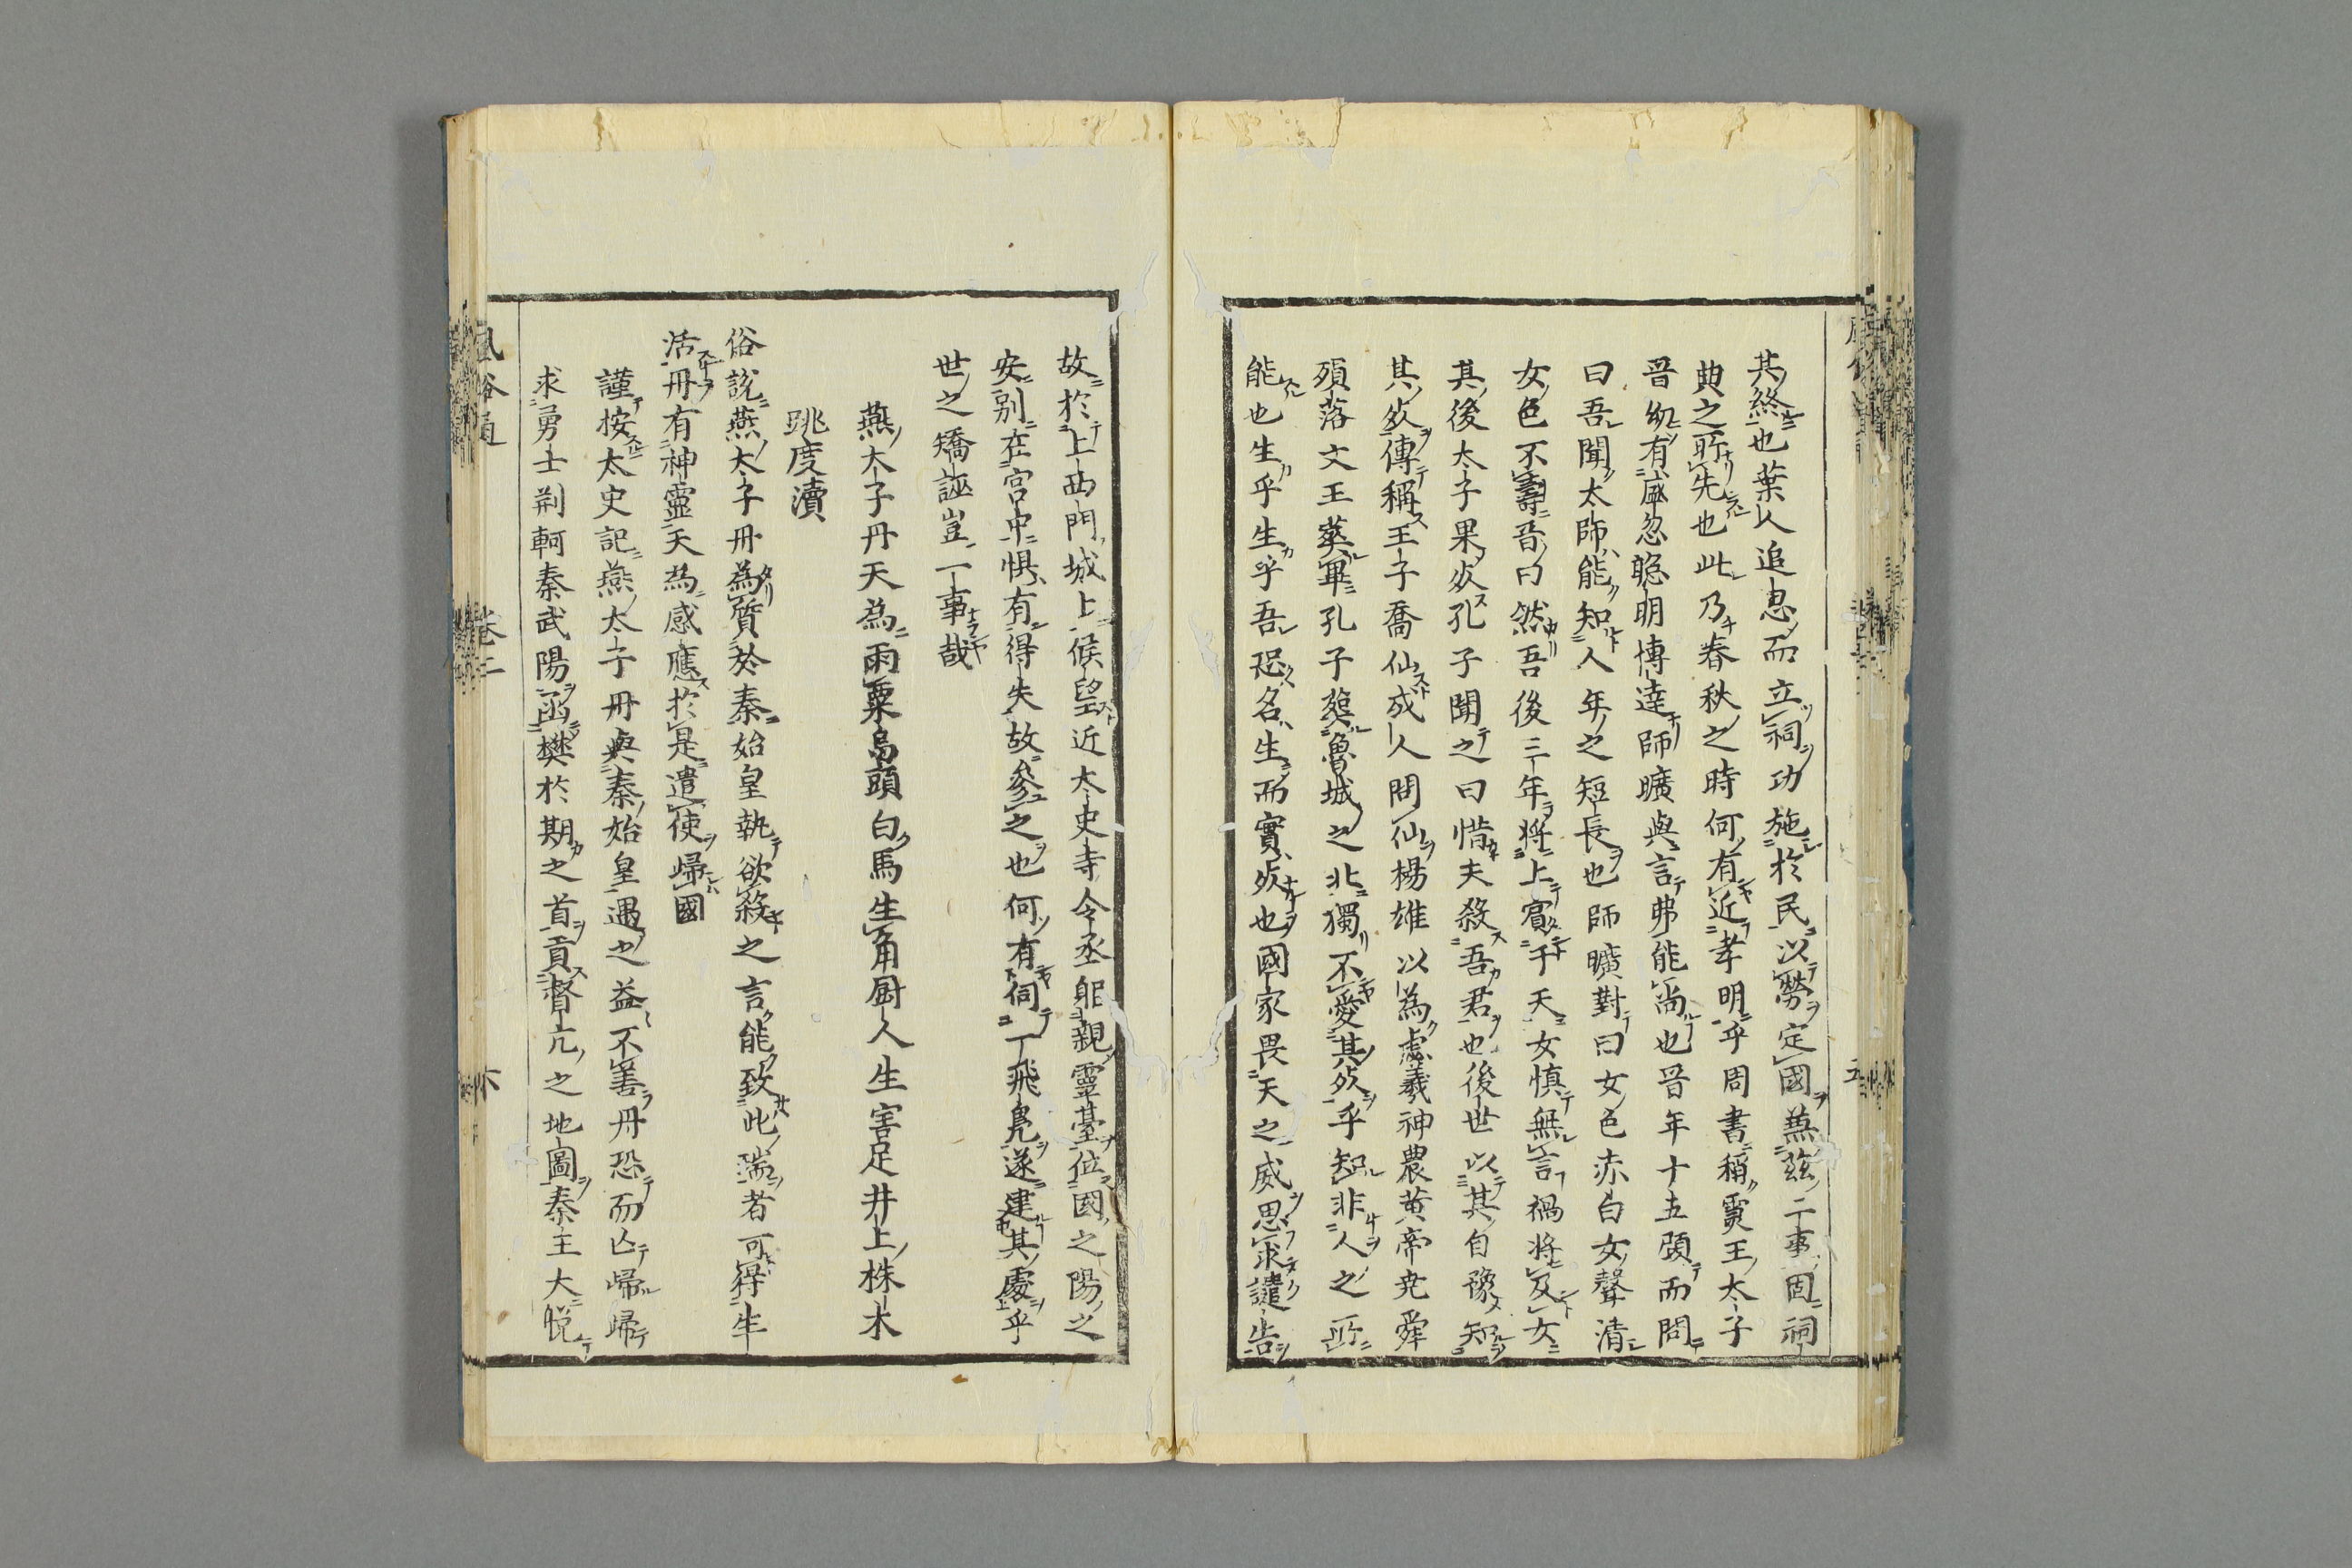 其終也葉人追思而立祠功施於民以勞定國兼茲二事固祠
典之所先也此乃春秋之時何有近孝明乎周書稱靈王太子
晋幼有盛忽聡明博達師曠與言弗能尚也晋年十五顧而問
曰吾聞太師能知人年之短長也師曠對曰女色赤白女聲清
女色不壽晋曰然吾後三年将上賔于天女慎無言禍将及女
其後太子果死孔子聞之曰惜夫殺吾君也後世以其自豫知
其死傳稱王子喬仙成人問仙楊雄以為虙羲神農黄帝尭舜
殞落文王葬畢孔子葬魯城之北獨不愛其死乎知非人之所
能也生乎生乎吾恐名生而實死也國家畏天之威思求譴告
故於上西門城上候望近太史寺令丞躬親靈臺位國之陽之
安别在宮中惧有得失故參之也何有伺一飛鳬遂建其處乎
世之矯誣豈一事哉
燕太子丹天為雨粟烏頭白馬生角厨人生害足井上株木
跳度瀆
俗説燕太子丹為質於秦始皇執欲殺之言能致此瑞者可得生
活丹有神靈天為感應於是遣使歸國
謹按太史記燕太子丹與秦始皇遇之益不善丹恐而亾歸歸
求勇士荆軻秦武陽函樊於期之首貢督亢之地圖秦王大悦
風俗通 卷二 六